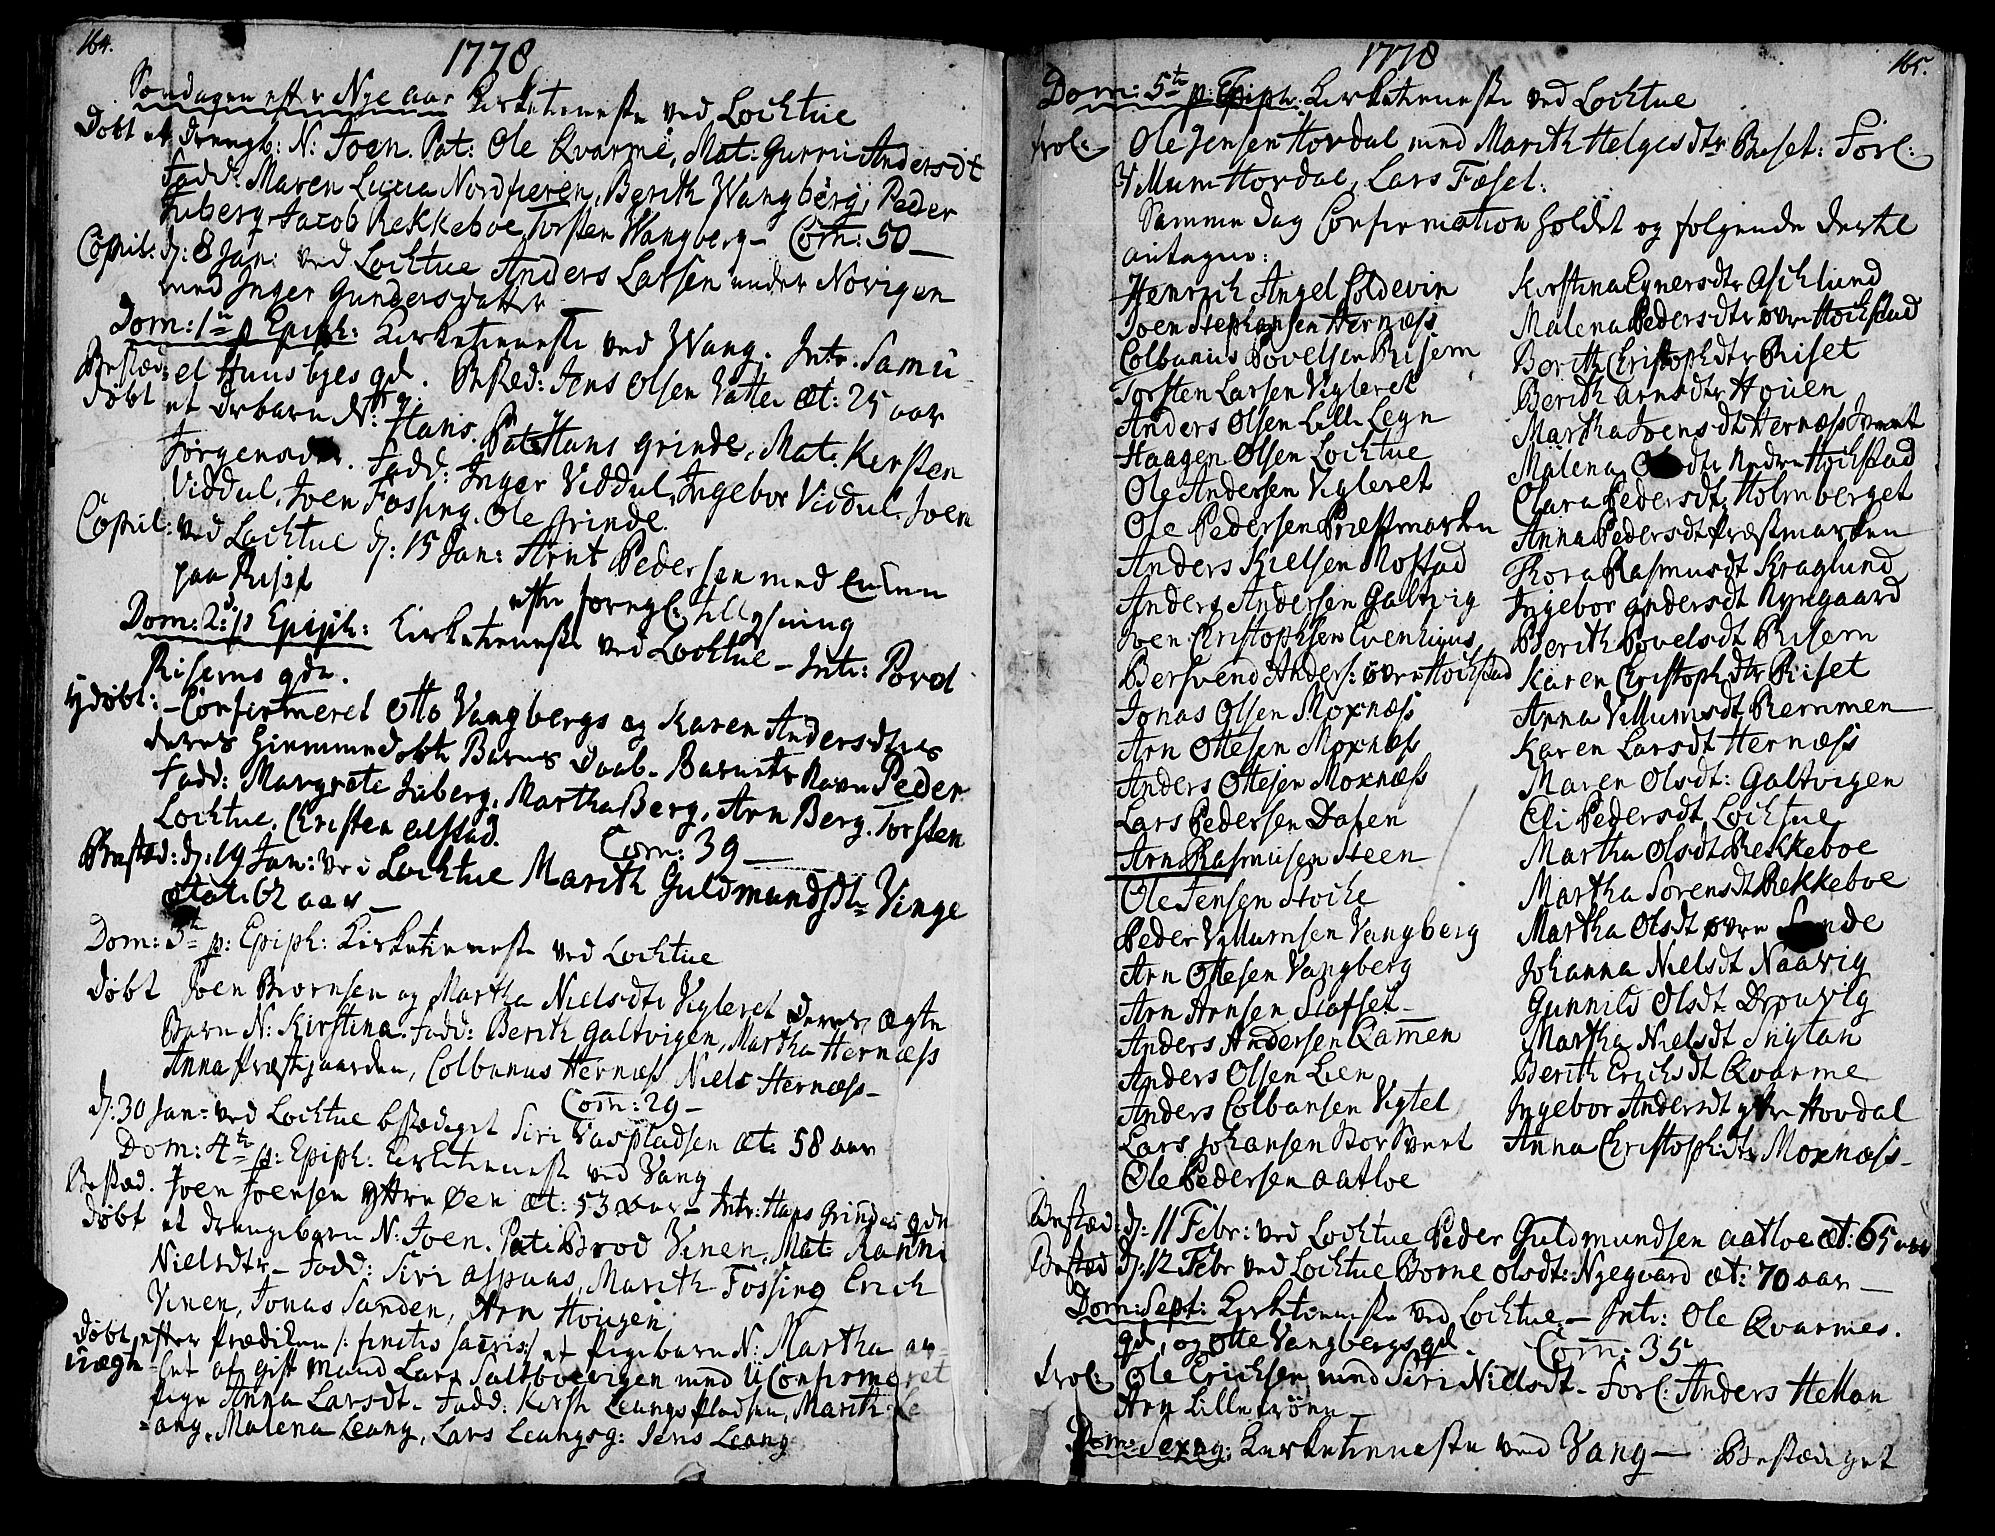 164.
1778
Søndagen efter Nye aar Kirketieneste ved Lochtue
Døbt et drengb: N: Joen. Pat: Ole Kvarme, Mat: Gurru Andersdt
Fadd: Maren Lucia Nordfieren, Berith Wangberg, Peder
Juberg Jacob Rekkeboe, Torsten Wangberg – Com: 50 –
Copul: d: 8 Jan: ved Lochtue Anders Larsen under Norigen
med Inger Gundersdatter
Dom: 1 p Epiph: Kirketieneste ved Wang. Intr: Samu-
Bested: el Huusbyes qd. Bested: Jens Olsen æt: 25 aar
Døbt et barn N: Hans. Pat Hans Grinde, Mat: Kirsten
Jørgensdtr. Fadd: Inger Viddul, Ingebor Viddul, Joen
Viddul, Joen Fossing, Ole Grinde.
Copul: ved Lochtue d: 15 Jan: Arnt Pedersen med
paa efter foregl: tillysning
Dom: 2 p Epiph: Kirketieneste ved Lochtue – Intr: Povel
Risems qdn.
Døbt: – Confirmeret Otto Vangbergs og Karen Andersdtrs
deres hiemmedøbte Barns Daab. Barnets Navn Peder
Fadd: Margrete Juberg, Martha Berg, Arn Berg, Torsten
Lochtue, Christen Alstad. Com: 39 –
Bested: d: 19 Jan: ved Lochtue Marith Guldmundsdtr Vinge
ætat: 62 aar –
Dom: 3 p: Epiph: Kirketieneste ved Lochtue
Døbt Joen Biørnsen og Martha Nielsdtr Vigleret deres ægte
Barn N: Kirstina. Fadd: Berith Galtvigen, Martha Hernæss
Anna Præstgaarden, Colbanus Hernæss Niels Hernæss –
Com: 29 –
d: 30 Jan: ved Lochtue bestediget Siri Vaspladsen æt: 58 aar
Dom: 4 p: Epiph: Kirketieneste ved Vang
Bested. Joen Joensen Yttre Øen æt: 53 aar – Intr: Hans Grindes qdn
Døbt et drengebarn N: Joen. Pat: Brod Vinen, Mat: Ranni
Nielsdtr – Fadd: Siri Aspaas, Marith Fossing Erich
Vinen, Jonas Sanden, Arn Hougen
Døbt efter Prædiken /: finitis sacris :/ et Pigebarn N: Martha av-
uægte let af gift Mand Lars Saltboevigen med Uconfirmeret
Pige Anna Larsdt. Fadd: Kirst Leangspladsen, Marith Le
-ang, Malena Leang, Lars Leangsg: Jens Leang
165.
1778
Dom: 5 p: Epiph: Kirketieneste ved Lochtue
trol: Ole Jensen Hordal med Marith Helgesdtr Reset: Forl:
Villum Hordal, Lars Fæset.
Samme Dag Confirmation holdet og følgende dertil
antagne:
Henrich Angel Coldevin
Joen Stephansen Hernæss
Colbanus Povelsen Risem
Torsten Larsen Vigleret
Anders Olsen Lille Legn
Haagen Olsen Lochtue
Ole Andersen Vigleret
Ole Pedersen Præstmarken
Anders Kielsen Nostad
Anders Andersen Galtvig
Joen Christophsen Evenhuus
Bersvend Anders: øvre Hochstad
Jonas Olsen Moxnæss
Arn Ottesen Moxnæss
Anders Ottesen Moxnæss
Lars Pedersen Dahlen
Arn Rasmusen Steen
Ole Jensen Stoche
Peder Villumsen Vangberg
Arn Ottesen Vangberg
Arn Arnsen Slafset
Anders Andersen Ramen
Anders Olsen Lien
Anders Colbansen Vigtel
Lars Johansen Storsvert
Ole Pedersen Aatloe
Kirstina Eynersdtr Aschlund
Malena Pedersdtr øvre Hochstad
Berith Christophdtr Riset
Berith Arnsdtr Houen
Martha Ivensdt Hernæss
Malena Olsdtr Nedre Hochstad
Clara Pedersdt. Holmberget
Anna Pedersdt Præstmarken
Thora Rasmusdt Kraglund
Ingebor Andersdt Nyegaard
Berith Povelsdt Risem
Karen Christophdtr Riset
Anna Villumsdt Remmen
Karen Larsdt Hernæss
Maren Olsdt: Galtvigen
Eli Pedersdt Lochtue
Martha Olsdt Rekkeboe
Martha Sorensdt Rekkeboe
Martha Olsdt øvre Sunde
Johanna Nielsdt Naavig
Gunnild Olsdt Drouvig
Martha Nielsdt Snytan
Berith Erichsdt Kvarme
Ingebor Andersdt yttre Hovdal
Anna Christophdtr Moxnæss –
Bested: d: 11 Febr: ved Lochtue Peder Guldmundsen Aatloe æt: 65 aar
Bested d: 12 Febr ved Lochtue Borne Olsdt: Nyegaard æt: 70 aar –
Dom: Sept: Kirketieneste ved Lochtue – Intr: Ole Kvarmes
qd, og Otte Vangbergs qd. Com: 35
trol: Ole Erichsen med Siri Nielsdt – Forl: Anders Hellan
Arn Lilletrøen –
Dom: Sexag: Kirketieneste ved Vang – Bestediget